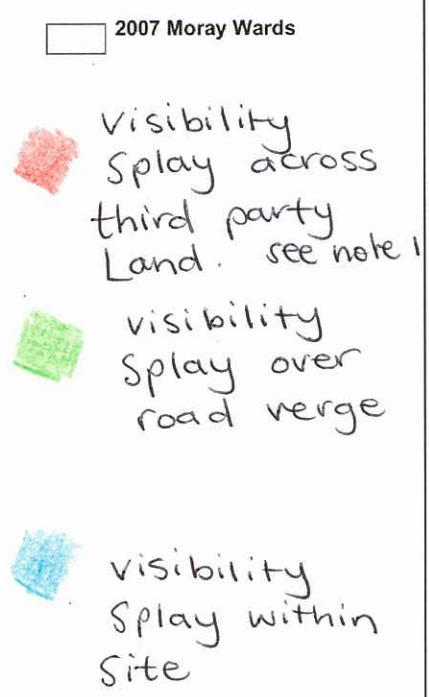 2007 Moray Wards
Visibility
Splay across
third party
Land. see note 1
visibility
Splay over
road verge
visibility
Splay within
Site